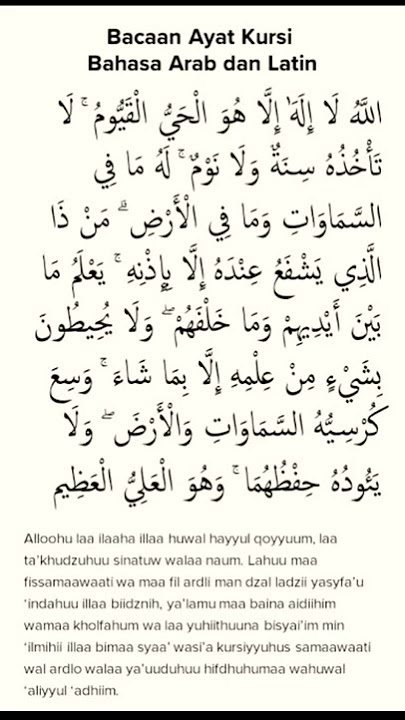 Bacaan Ayat Kursi
Bahasa Arab dan Latin
اللَّهُ لَا إِلَٰهَ إِلَّا هُوَ الْحَيُّ الْقَيُّومُ ۚ لَا
تَأْخُذُهُ سِنَةٌ وَلَا نَوْمٌ ۚ لَهُ مَا فِي
السَّمَاوَاتِ وَمَا فِي الْأَرْضِ ۗ مَنْ ذَا
الَّذِي يَشْفَعُ عِنْدَهُ إِلَّا بِإِذْنِهِ ۚ يَعْلَمُ مَا
بَيْنَ أَيْدِيهِمْ وَمَا خَلْفَهُمْ ۖ وَلَا يُحِيطُونَ
بِشَيْءٍ مِنْ عِلْمِهِ إِلَّا بِمَا شَاءَ ۚ وَسِعَ
كُرْسِيُّهُ السَّمَاوَاتِ وَالْأَرْضَ ۖ وَلَا
يَئُودُهُ حِفْظُهُمَا ۚ وَهُوَ الْعَلِيُّ الْعَظِيم
Alloohu laa ilaaha illaa huwal hayyul qoyyuum, laa
ta'khudzuhuu sinatuw walaa naum. Lahuu maa
fissamaawaati wa maa fil ardli man dzal ladzii yasyfa'u
'indahuu illaa biidznih, ya'lamu maa baina aidiihim
wamaa kholfahum wa laa yuhiithuuna bisyai'im min
'ilmihii illaa bimaa syaa' wasi'a kursiyyuhus samaawaati
wal ardlo walaa ya'uuduhuu hifdhuhumaa wahuwal
'aliyyul 'adhiim.